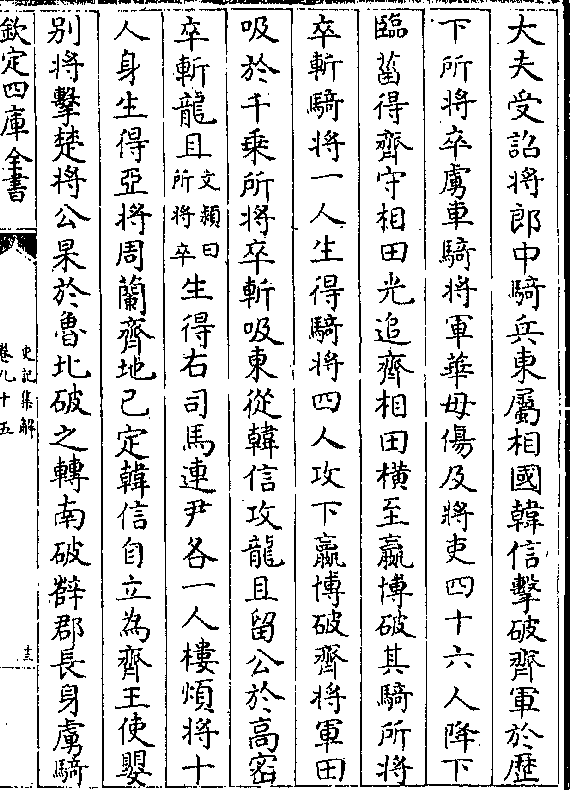 大夫受詔將郎中騎兵東屬相國韓信擊破齊軍於歴
下所將卒虜車騎將軍華毋傷及將吏四十六人降下
臨菑得齊守相田光追齊相田横至嬴博破其騎所將
卒斬騎將一人生得騎將四人攻下嬴博破齊將軍田
吸於千乗所將卒斬吸東從韓信攻龍且留公於高宻
卒斬龍且文穎曰所將卒生得右司馬連尹各一人樓煩將十
人身生得亞將周蘭齊地已定韓信自立為齊王使嬰
别將擊楚將公杲於魯北破之轉南破薛郡長身虜騎
欽定四庫全書
史記集解
卷九十五